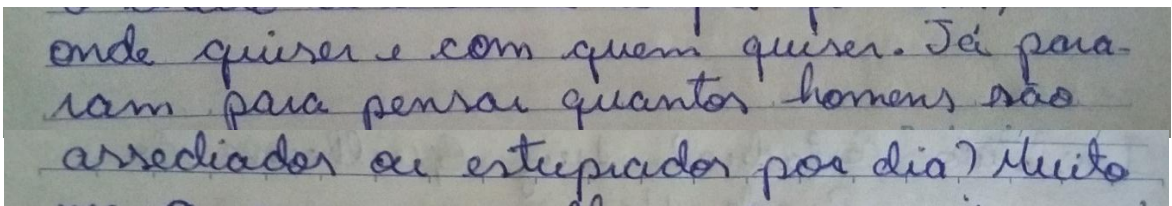 onde quiser e com quem quiser. Já para-
ram para pensar quantos homens são
assediados ou estuprados por dia? Muito